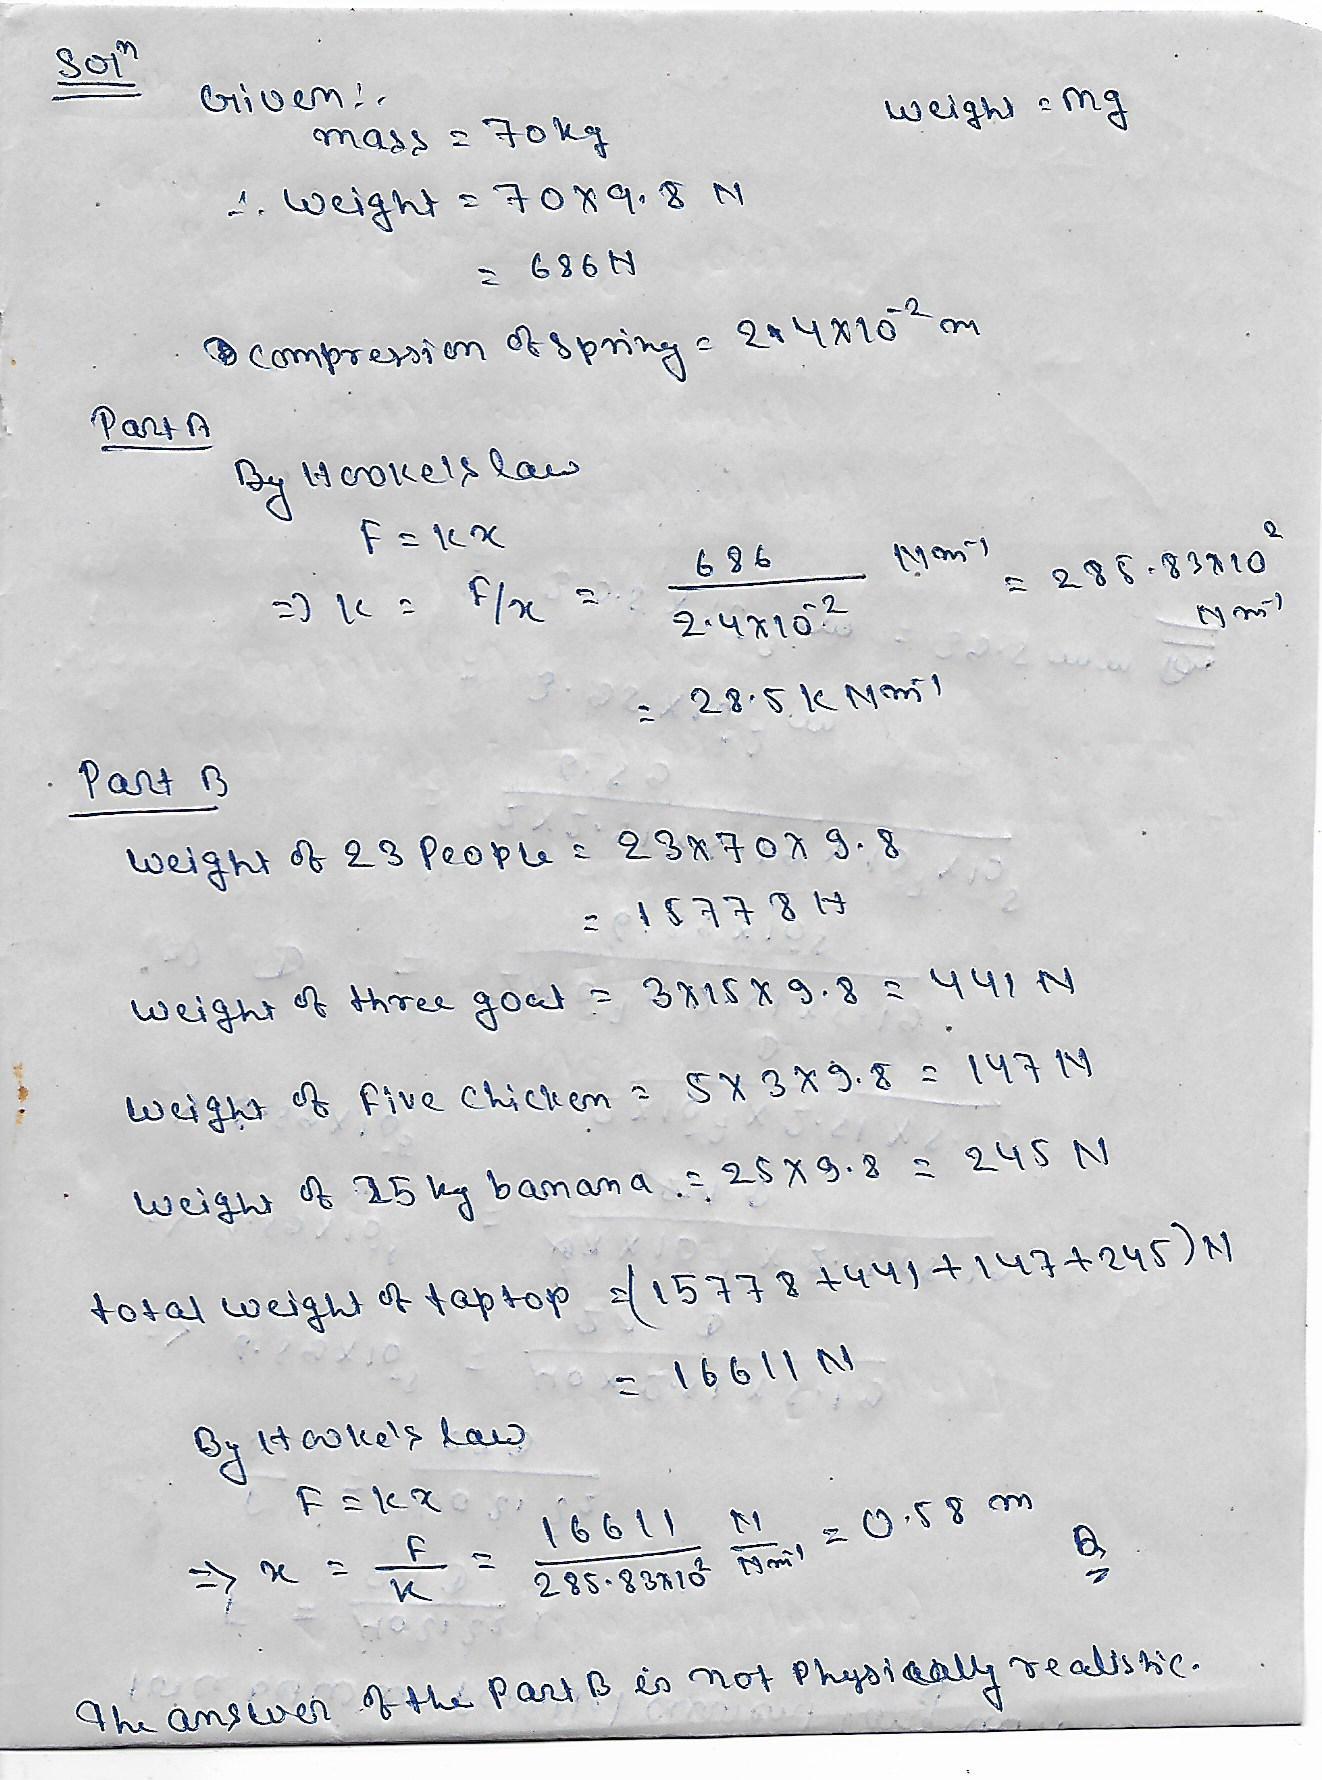 Solⁿ
Given:-
weight = mg
mass = 70kg
∴ weight = 70×9.8 N
= 686N
compression of spring = 2.4×10⁻² m
Part A
By Hooke's law
F = kx
=> k = F/x = 686 / 2.4×10⁻² Nm⁻¹ = 285.83×10² Nm⁻¹
= 28.5 k Nm⁻¹
Part B
weight of 23 People = 23×70×9.8
= 15778 N
weight of three goat = 3×15×9.8 = 441 N
weight of five chicken = 5×3×9.8 = 147 N
weight of 25 kg banana = 25×9.8 = 245 N
total weight of taptop = (15778+441+147+245) N
= 16611 N
By Hooke's law
F = kx
=> x = F/k = 16611 / 285.83×10² N/Nm⁻¹ = 0.58 m
The answer of the Part B is not Physically realistic.